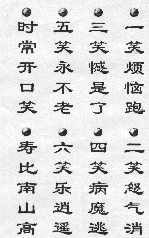 一笑烦恼跑
二笑怒气消
三笑憾是了
四笑病魔逃
五笑永不老
六笑乐逍遥
时常开口笑
寿比南山高